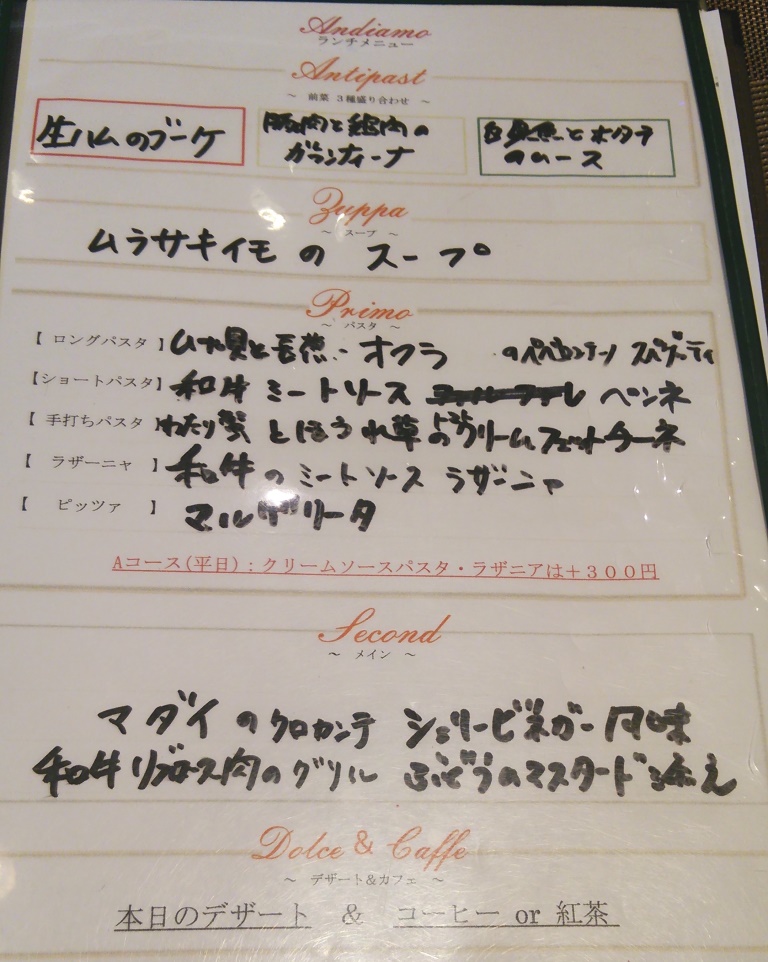 Andiamo
ランチメニュー
Antipast
～ 前菜 3種盛り合わせ ～
生ハムのブーケ
豚肉と鶏肉の
ガランティーナ
白身魚とホタテ
のムース
Zuppa
～ スープ ～
ムラサキイモの スープ
Primo
～ パスタ ～
【 ロングパスタ 】ムール貝と オクラ のペペロンチーノ スパゲッティ
【ショートパスタ】和牛 ミートソース ペンネ
【 手打ちパスタ 】わたり蟹 とほうれ草のクリーム フェットチーネ
【 ラザーニャ 】和牛のミートソース ラザーニャ
【 ピッツァ 】 マルゲリータ
Aコース(平日)：クリームソースパスタ・ラザニアは＋３００円
Second
～ メイン ～
マダイのクロカンテ シェリービネガー風味
和牛リブロース肉のグリル ぶどうのマスタード添え
Dolce & Caffe
～ デザート＆カフェ ～
本日のデザート ＆ コーヒー or 紅茶